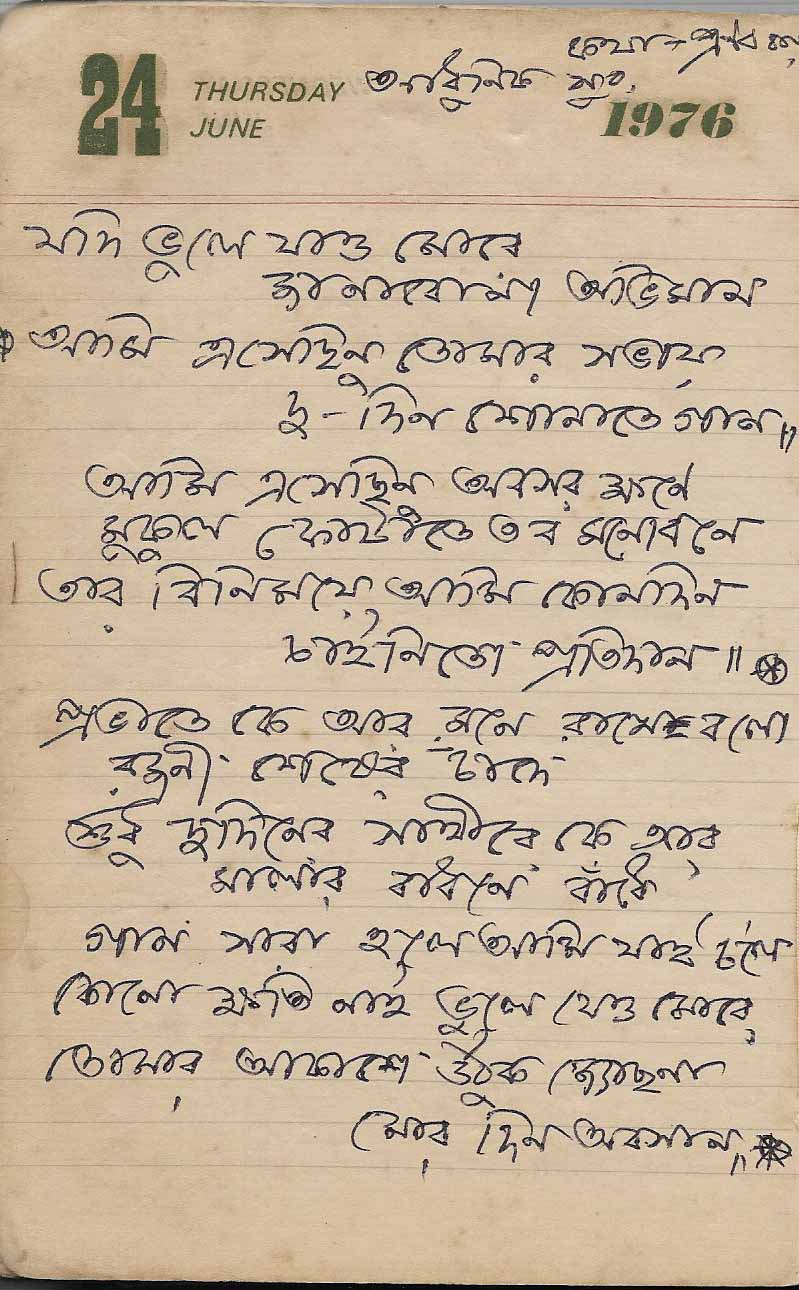 কথা - প্রণব
24 THURSDAY JUNE আধুনিক সুর, 1976
যদি ভুলে যাও মোরে
জানাবো না অভিমান
আমি এসেছিনু তোমার সভায়
দু-দিন শোনাতে গান ॥
আমি এসেছিনু অবসর ক্ষনে
মুকুল ফোটাতে তব মনোবনে
তার বিনিময়ে আমি কোনদিন
চাইনিতো প্রতিদান ॥
প্রভাতে কে আর মনে রাখে বলো
রজনী শেষের চাদে
শুধু দুদিনের সাথীরে কে আর
মালার বাধনে বাঁধে
গান সারা হলে আমি যাই চলে
কোনো ক্ষতি নাই ভুলে যেও মোরে
তোমার আকাশে উঠুক জ্যোছনা
মোর দিন অবসান ॥